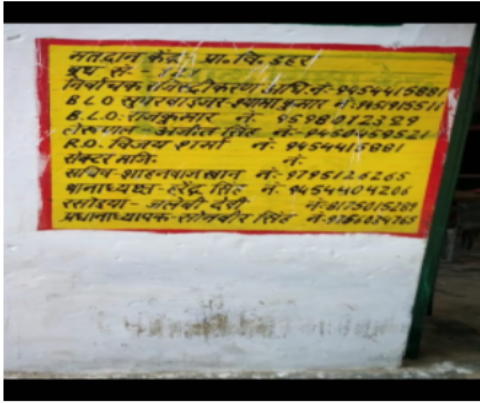 मतदान केंद्र प्रा. वि. डहर
बूथ सं-
निर्वाचक रजिस्ट्रीकरण अधि. नं:-9454415881
B L O सुपरवाइजर-श्यामा कुमार नं:
B.L.O: राजकुमार नं: 9598012329
लेखपाल अजीत सिंह नं:-9450459521
R.O. विजय शर्मा नं: 9454415881
सेक्टर मजि. नं:-
सचिव-शाहनवाज खान नं:-9795126265
थानाध्यक्ष-हरेंद्र सिंह नं:-9454404206
रसोइया-जलेबी देवी नं:-8175015289
प्रधानाध्यापक-सोनवीर सिंह नं:-9761034765